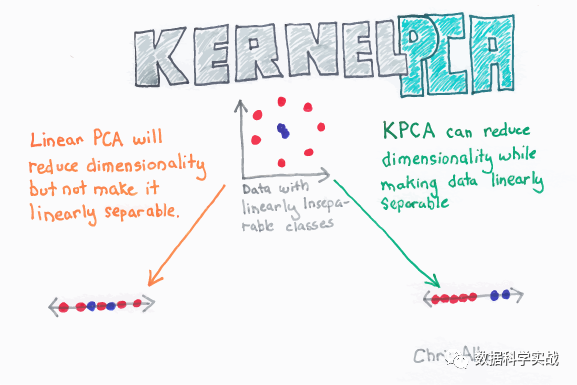 KERNEL PCA
Linear PCA will
reduce dimensionality
but not make it
linearly separable.
KPCA can reduce
dimensionality while
making data linearly
separable
Data with
linearly Insepa-
rable classes
Chris
数据科学实战